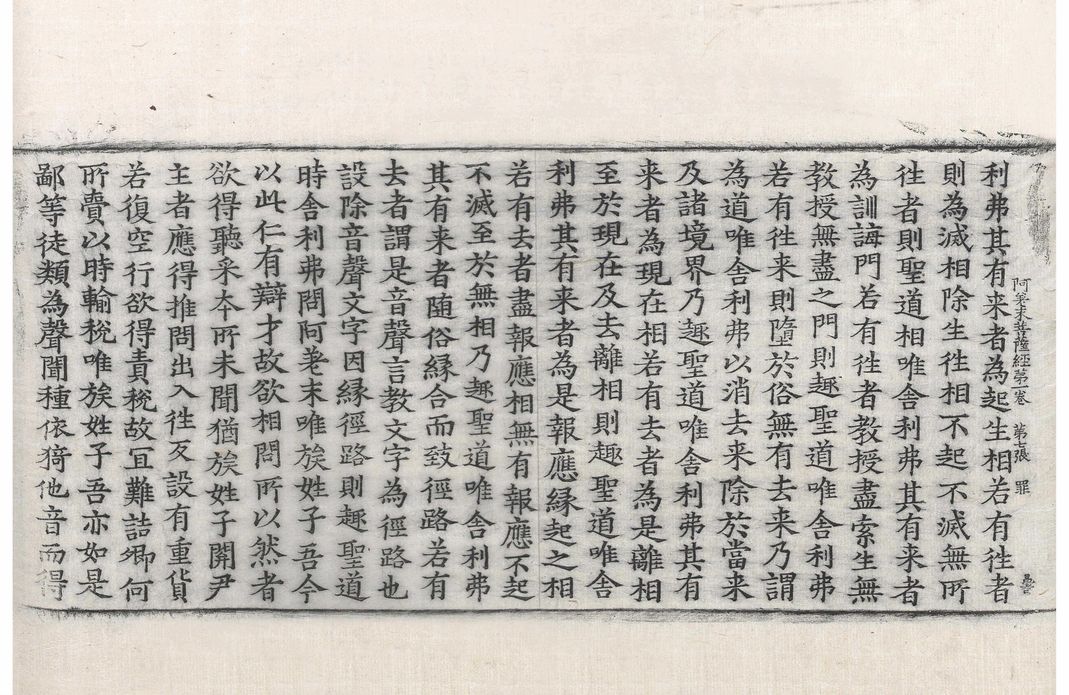 阿差末菩薩經第一卷　第七張　罪
利弗其有来者為起生相若有徃者
則為滅相除生徃相不起不滅無所
徃者則聖道相唯舍利弗其有来者
為訓誨門若有徃者教授盡索生無
教授無盡之門則趣聖道唯舍利弗
若有徃来則墮於俗無有去来乃謂
為道唯舍利弗以消去来除於當来
及諸境界乃趣聖道唯舍利弗其有
来者為現在相若有去者為是離相
至於現在及去離相則趣聖道唯舍
利弗其有来者為是報應縁起之相
若有去者盡報應相無有報應不起
不滅至於無相乃趣聖道唯舍利弗
其有来者随俗縁合而致徑路若有
去者謂是音聲言教文字為徑路也
設除音聲文字因縁徑路則趣聖道
時舍利弗問阿差末唯族姓子吾今
以此仁有辯才故欲相問所以然者
欲得聽采夲所未聞猶族姓子關尹
主者應得推問出入徃反設有重貨
若復空行欲得責稅故冝難詰卿何
所賣以時輸稅唯族姓子吾亦如是
鄙等徒類為聲聞種依猗他音而得